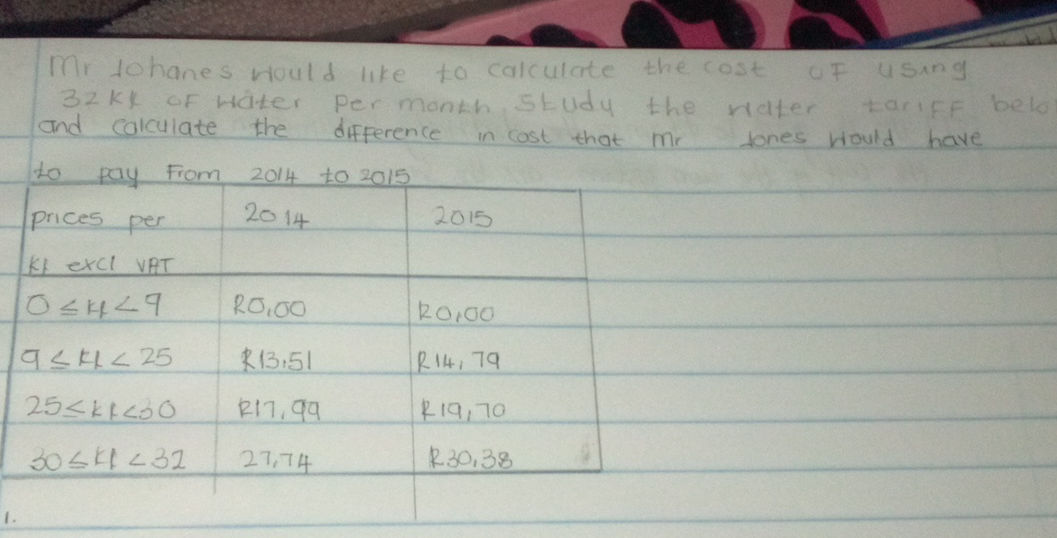 Mr Johanes would like to calculate the cost of using
32kl of water per month. Study the water tariff belo
and calculate the difference in cost that Mr Jones would have
to pay from 2014 to 2015
prices per 2014 2015
kl excl VAT
0 ≤ kl < 9 R0,00 R0,00
9 ≤ kl < 25 R13,51 R14,79
25 ≤ kl < 30 R17,99 R19,70
30 ≤ kl < 32 27,74 R30,38
1.